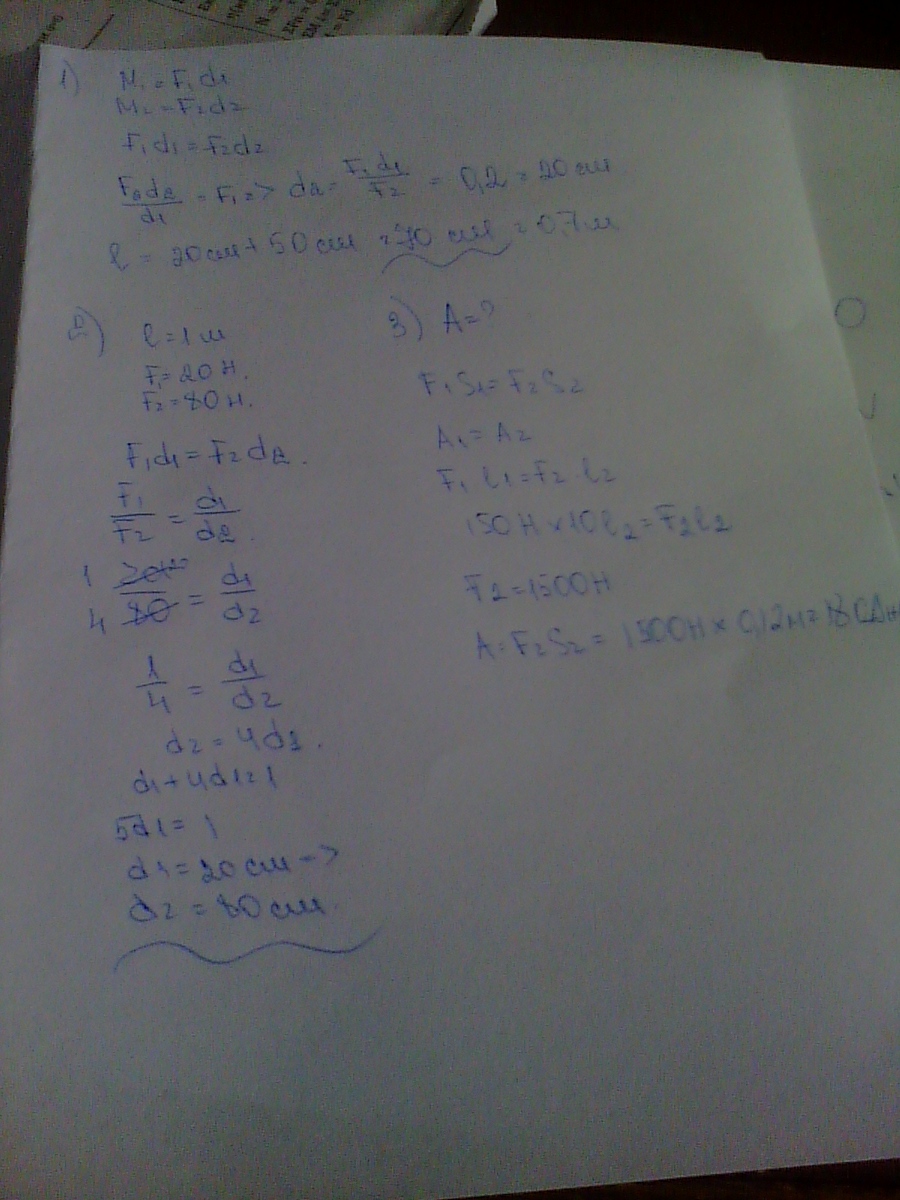 1)
M₁ = F₁d₁
M₂ = F₂d₂
F₁d₁ = F₂d₂
F₂d₂/d₁ = F₁ => d₂ = F₁d₁/F₂ = 0,2 = 20 см
l = 20 см + 50 см = 70 см = 0,7 м
2)
l = 1 м
F₁ = 20 Н.
F₂ = 80 Н.
F₁d₁ = F₂d₂.
F₁/F₂ = d₁/d₂.
1 4 20/80 = d₁/d₂
1/4 = d₁/d₂
d₂ = 4d₁.
d₁ + 4d₁ = 1
5d₁ = 1
d₁ = 20 см =>
d₂ = 80 см.
3) A = ?
F₁S₁ = F₂S₂
A₁ = A₂
F₁ l₁ = F₂ · l₂
150 Н × 10l₂ = F₂l₂
F₂ = 1500 Н
A = F₂S₂ = 1500 Н × 0,12 м = 180 Дж